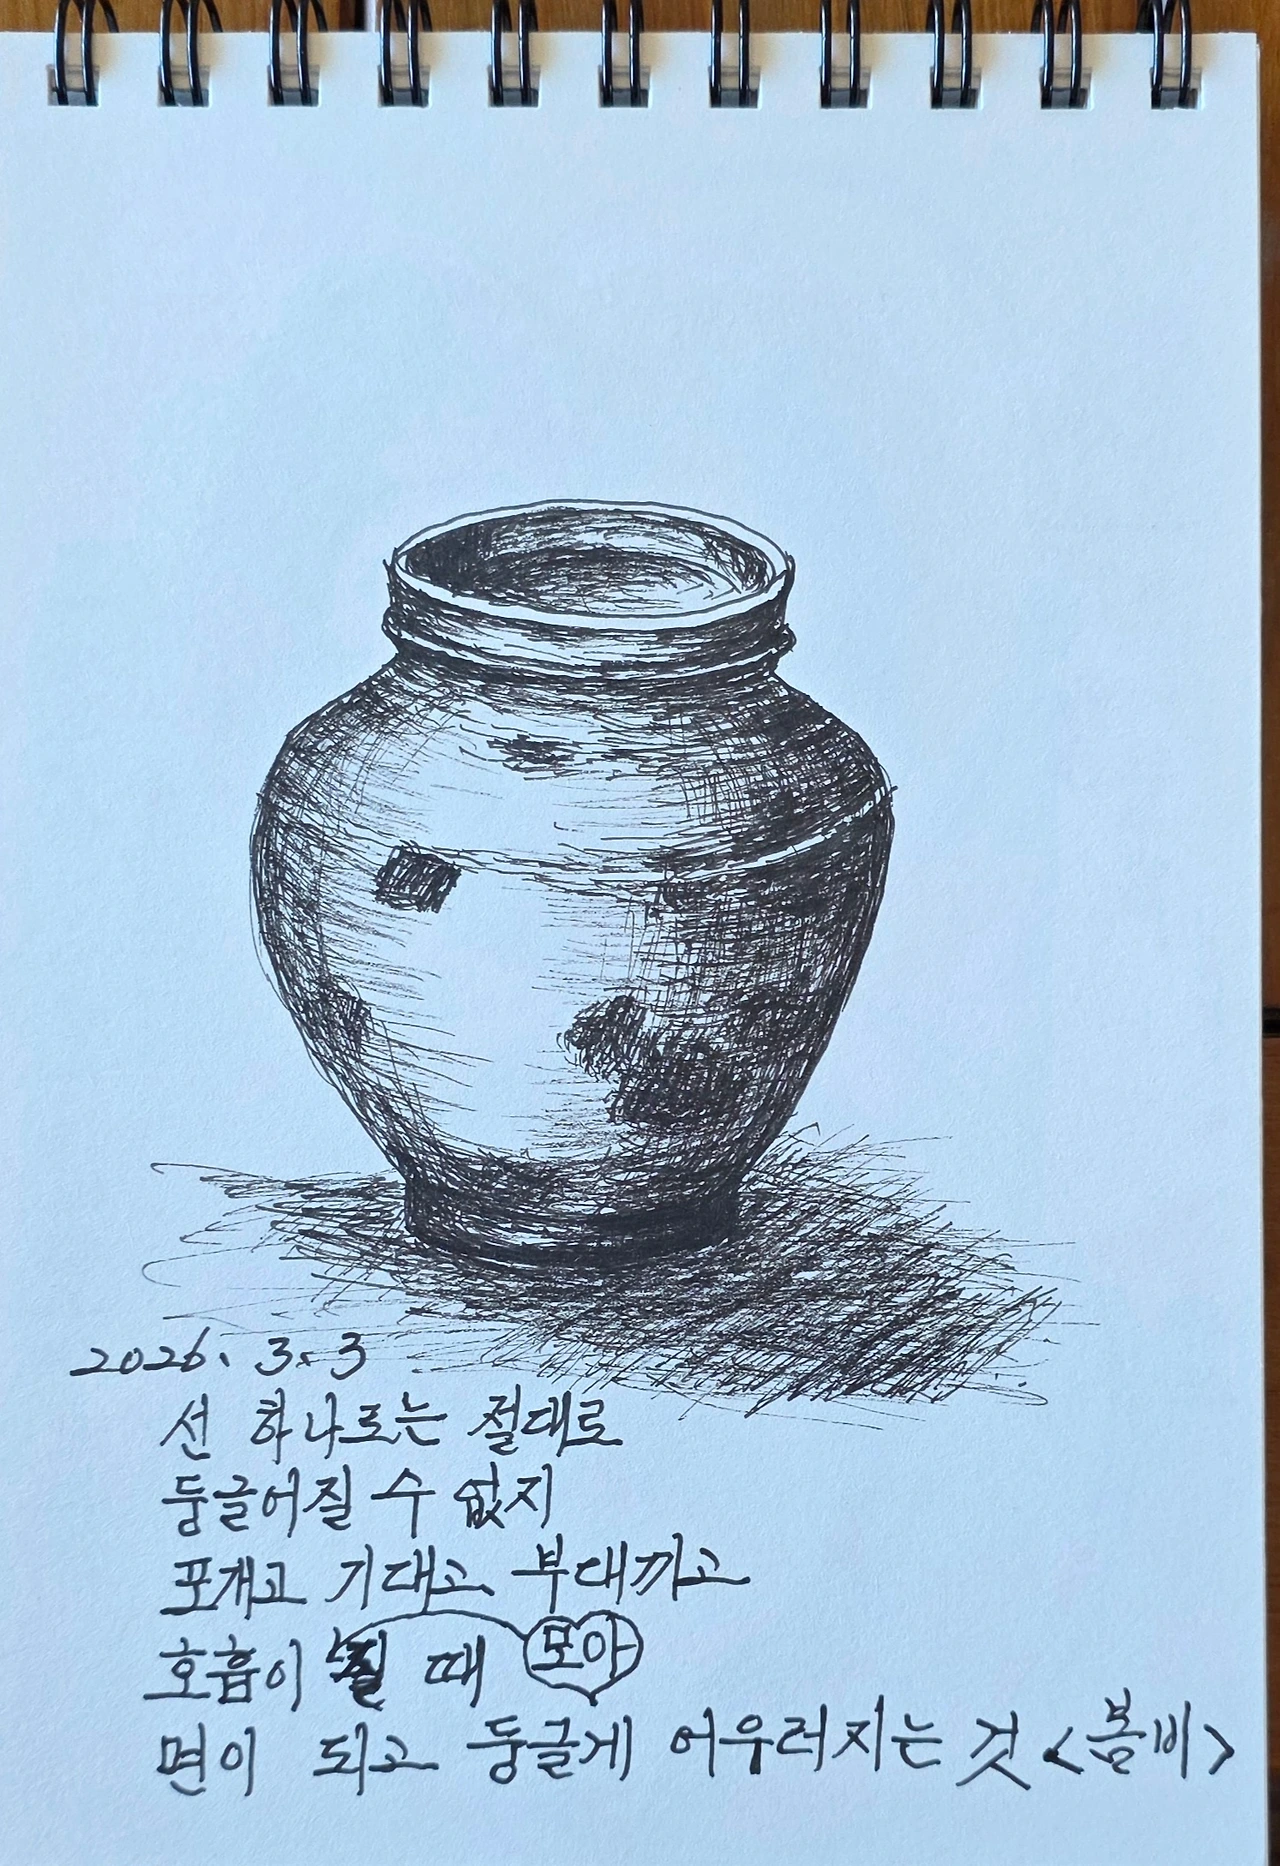 2026. 3. 3
선 하나로는 절대로
둥글어질 수 없지
포개고 기대고 부대끼고
호흡이 때 모아
면이 되고 둥글게 어우러지는 것 <봄비>